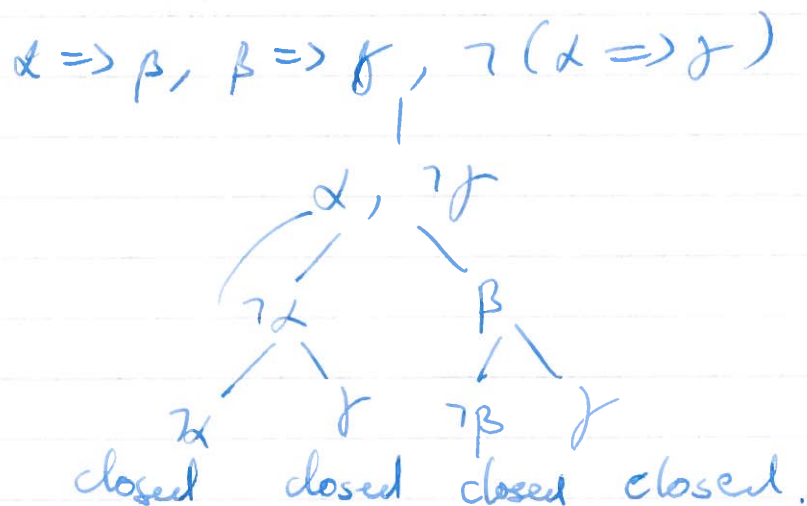 α => β, β => γ, ¬(α => γ)
α, ¬γ
¬α β
¬α γ ¬β γ
closed closed closed closed.